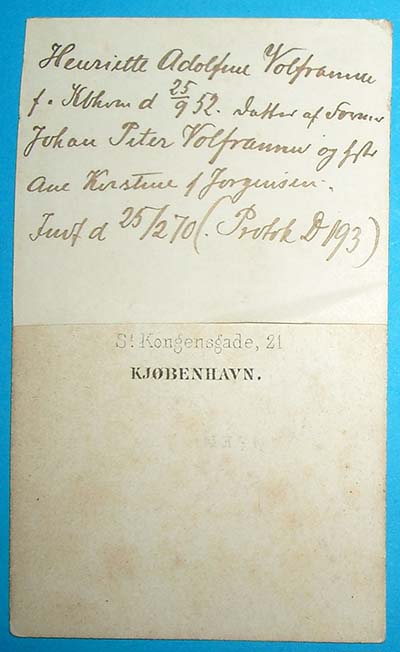 Henriette Adolfine Volframm
f. Kbhvn d 25/9 52. Datter af Former
Johan Peter Volframm og Hstr
Ane Kirstine f Jørgensen.
Indf d 25/2 70 (Protok D 193)
St Kongensgade, 21
KJØBENHAVN.